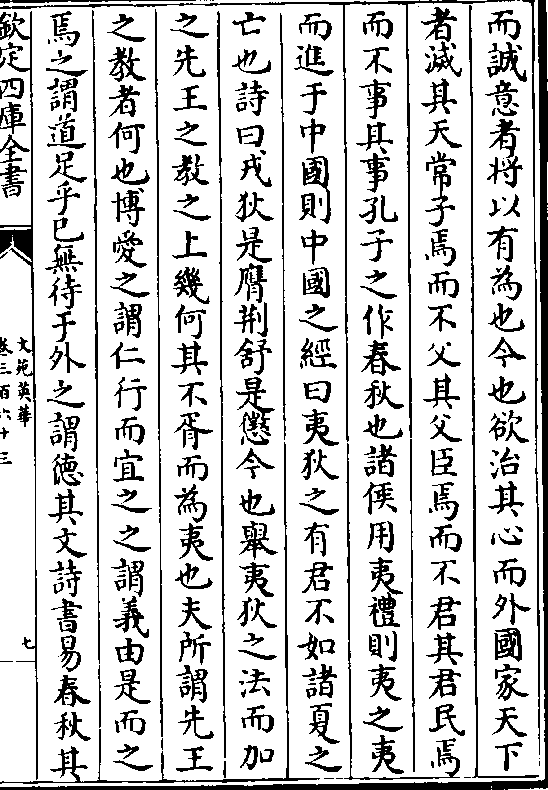 而誠意者將以有為也今也欲治其心而外國家天下
者滅其天常子焉而不父其父臣焉而不君其君民焉
而不事其事孔子之作春秋也諸侯用夷禮則夷之夷
而進于中國則中國之經曰夷狄之有君不如諸夏之
亡也詩曰戎狄是膺荆舒是懲今也舉夷狄之法而加
之先王之教之上幾何其不胥而為夷也夫所謂先王
之教者何也博愛之謂仁行而宜之之謂義由是而之
焉之謂道足乎已無待于外之謂德其文詩書易春秋其
欽定四庫全書
文苑英華
卷三百六十三
七